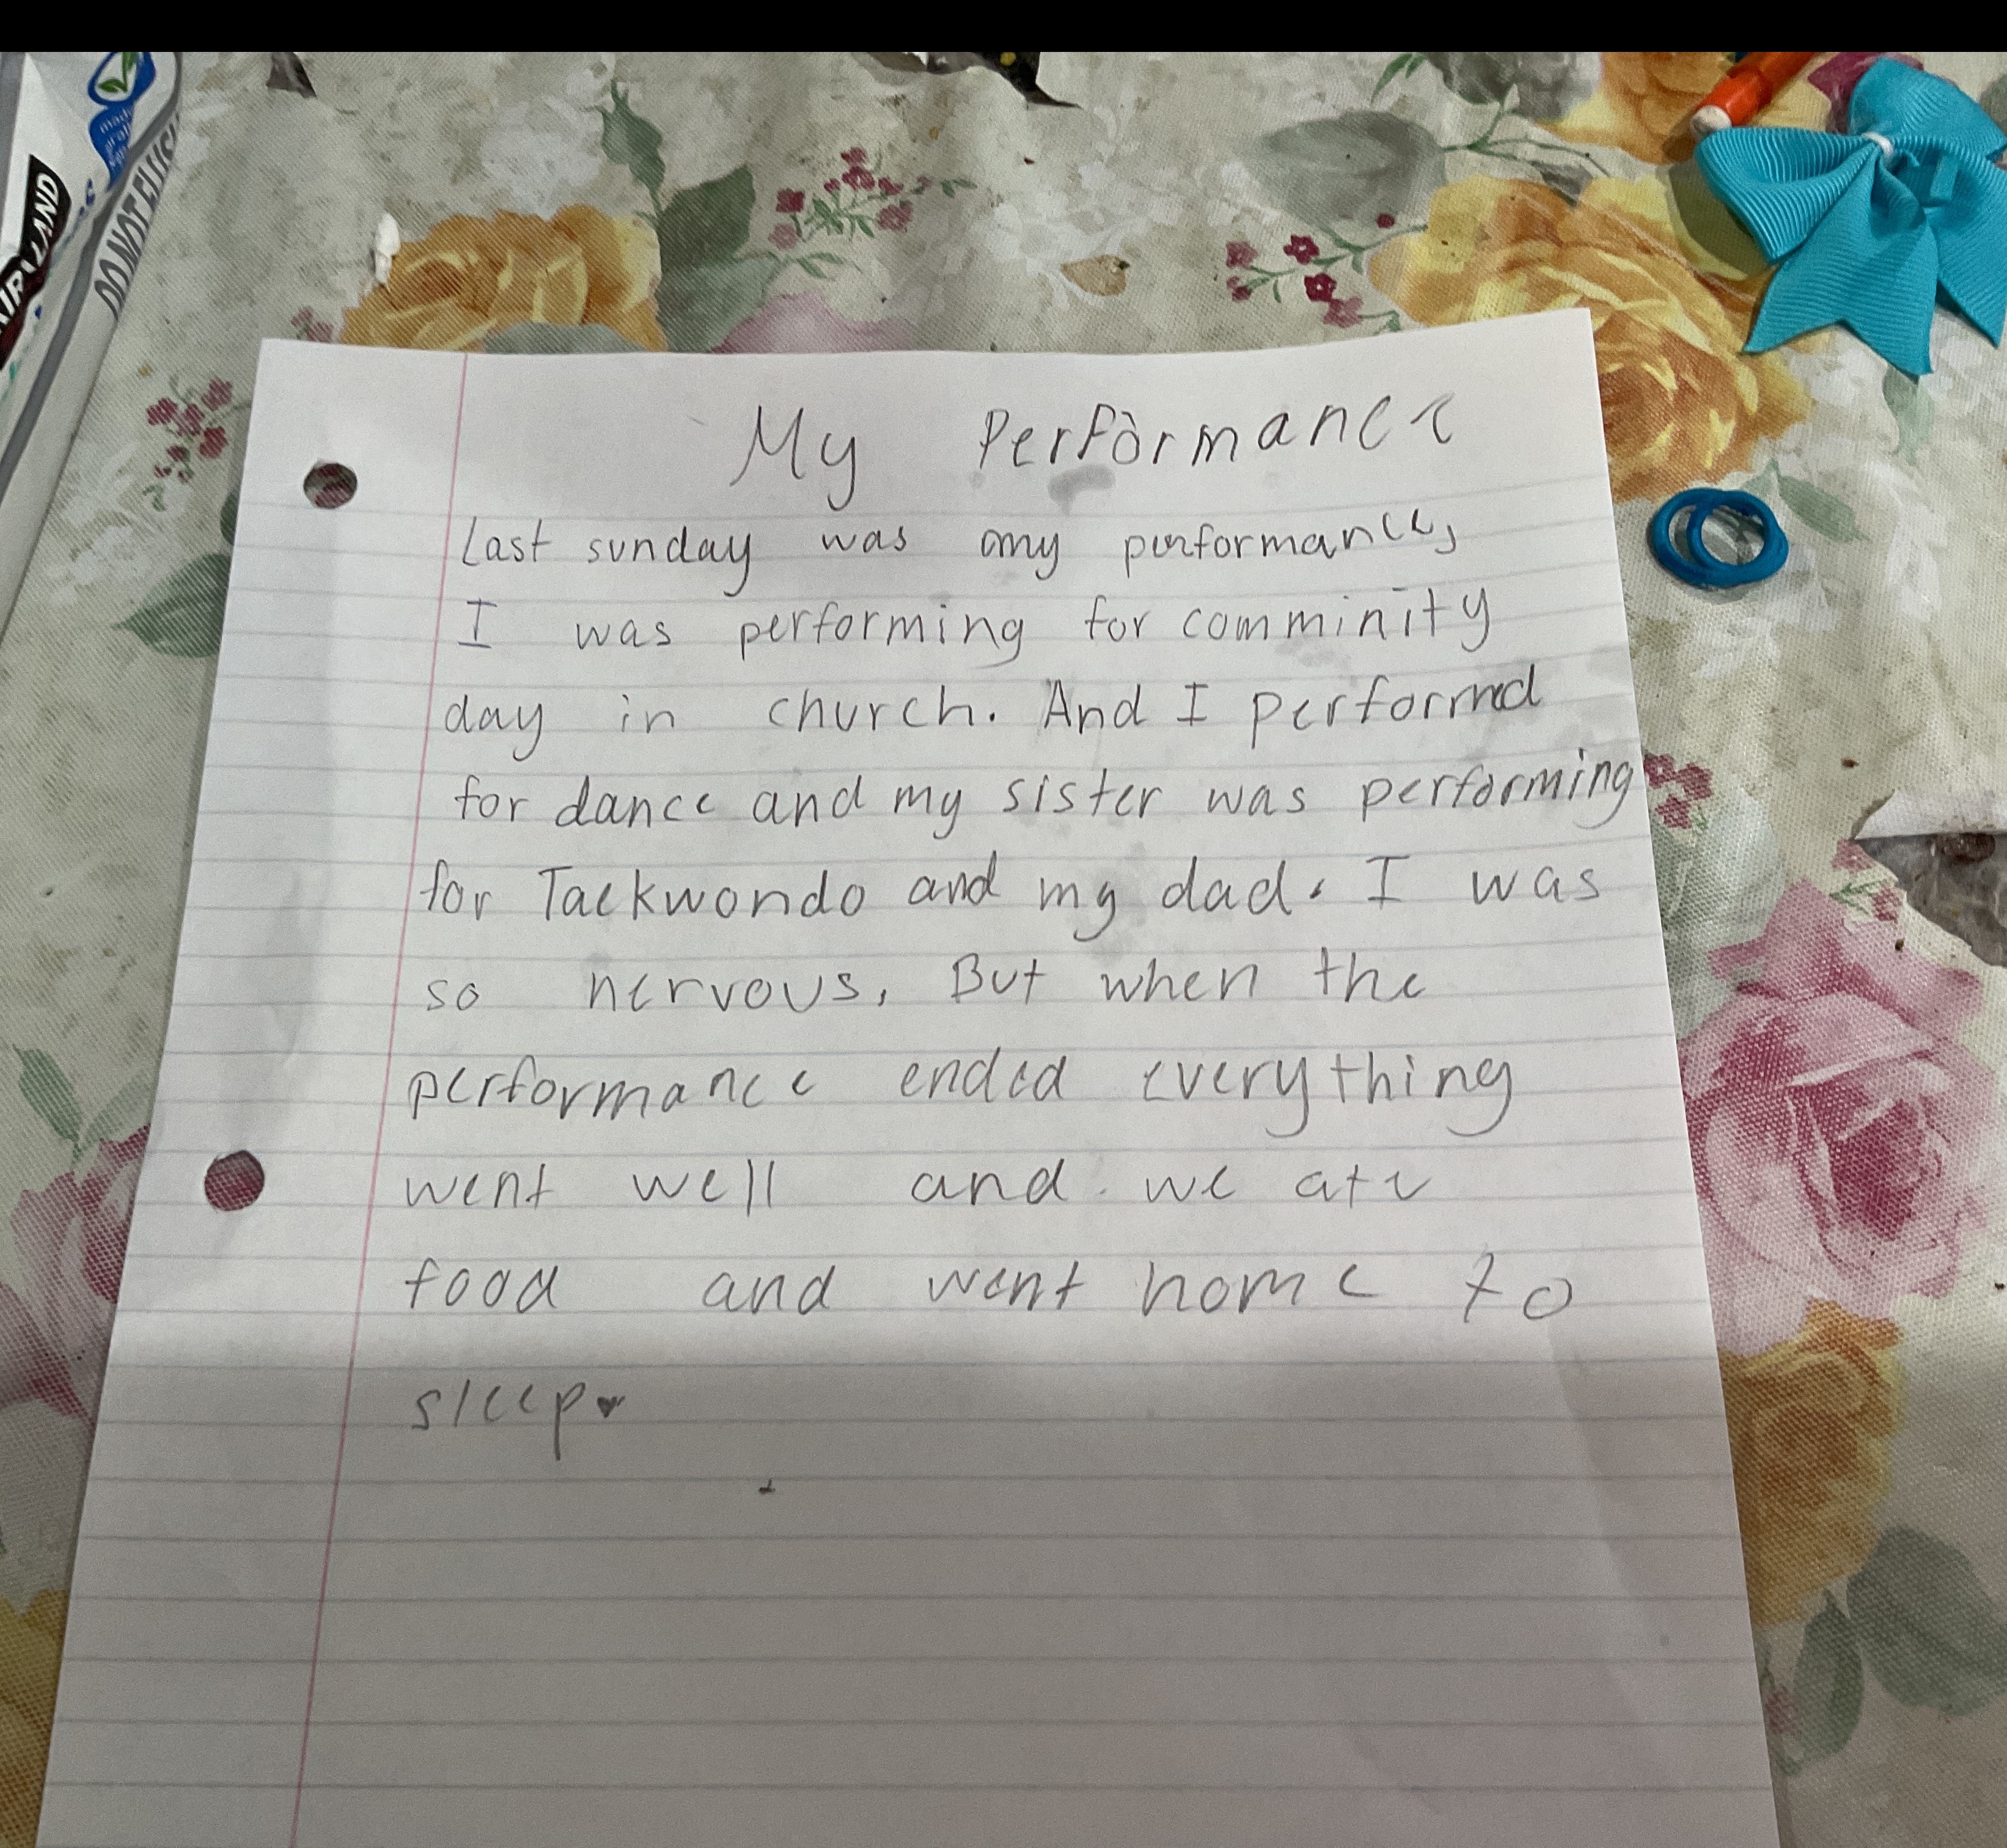 made
DO NOT FLUSH
My Performance
Last sunday was my performance,
I was performing for comminity
day in church. And I performed
for dance and my sister was performing
for Taekwondo and my dad. I was
so nervous. But when the
performance ended everything
went well and we ate
food and went home to
sleep.